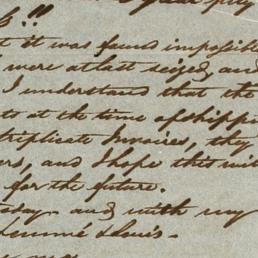 t it was found impossible
were at last seized and
I understand that the
ts at the time of shipp
triplicate Invoices, they
ers, and I hope this wil
for the future.
and with my